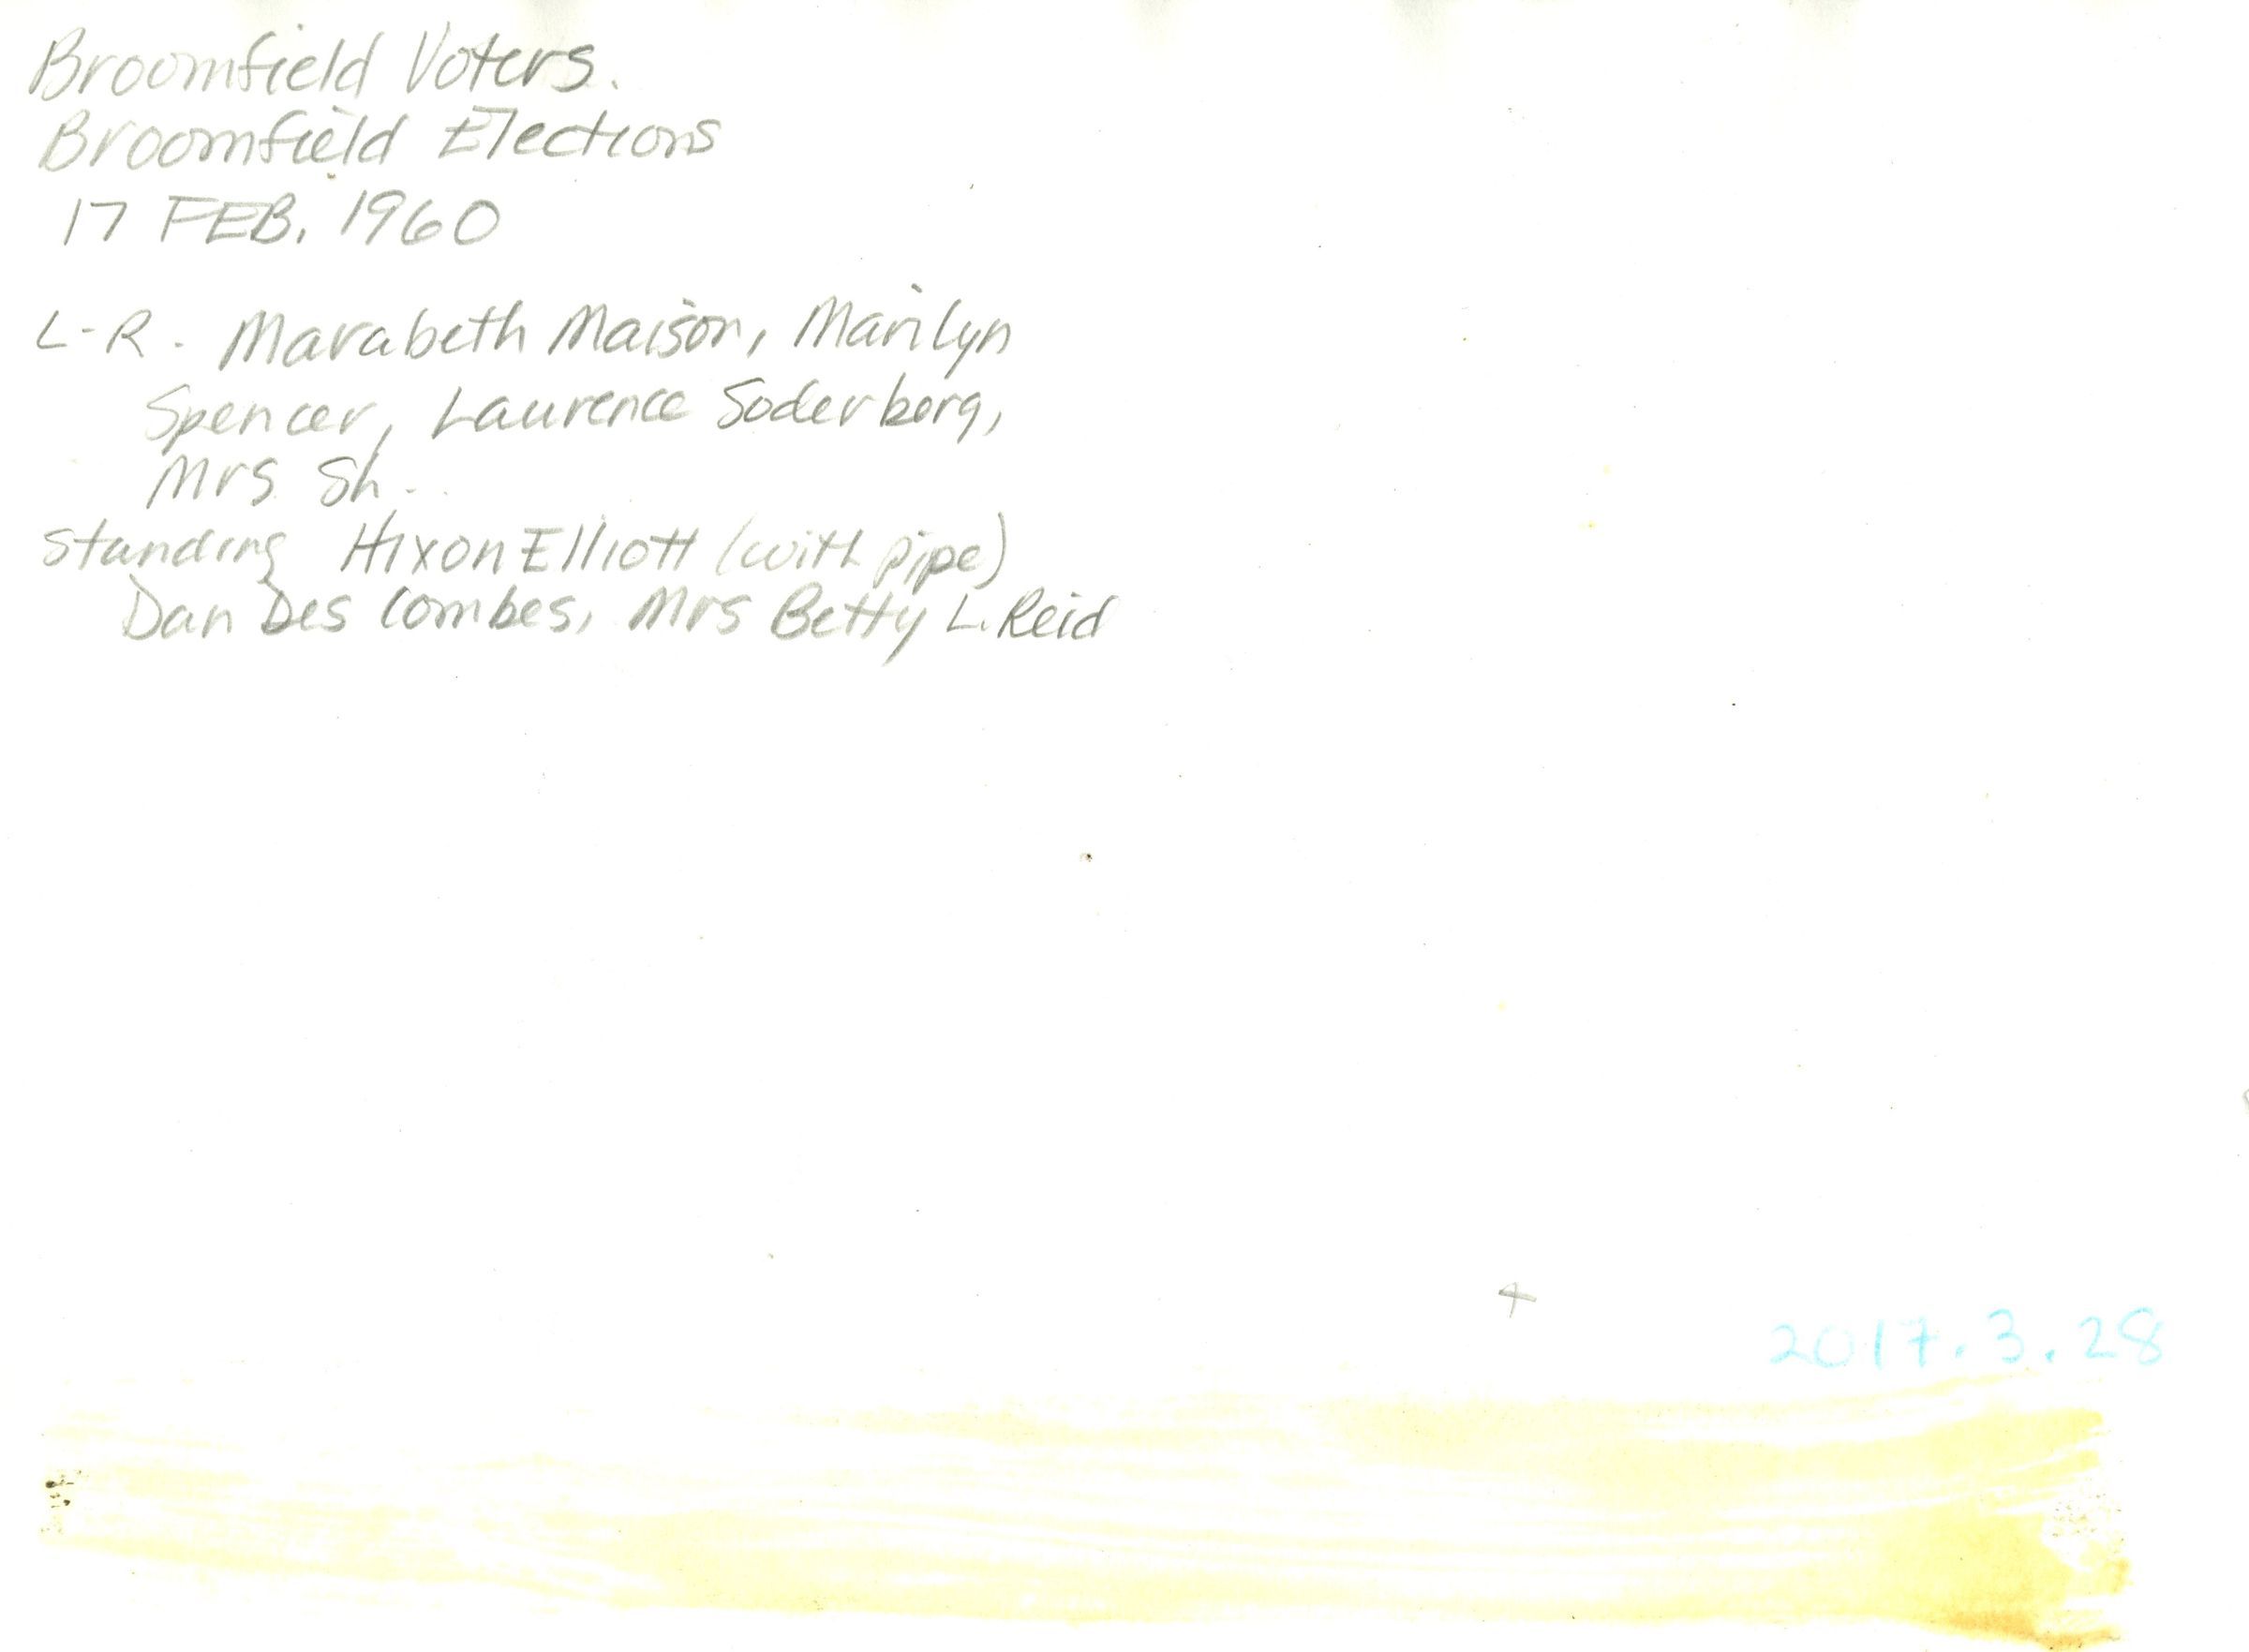 Broomfield Voters.
Broomfield Elections
17 FEB. 1960
L-R. Marabeth Maison, Marilyn
Spencer, Laurence Soderberg,
Mrs Sh...
standing Hixon Elliott (with pipe)
Dan Des Combes, Mrs Betty L. Reid
2017.3.28